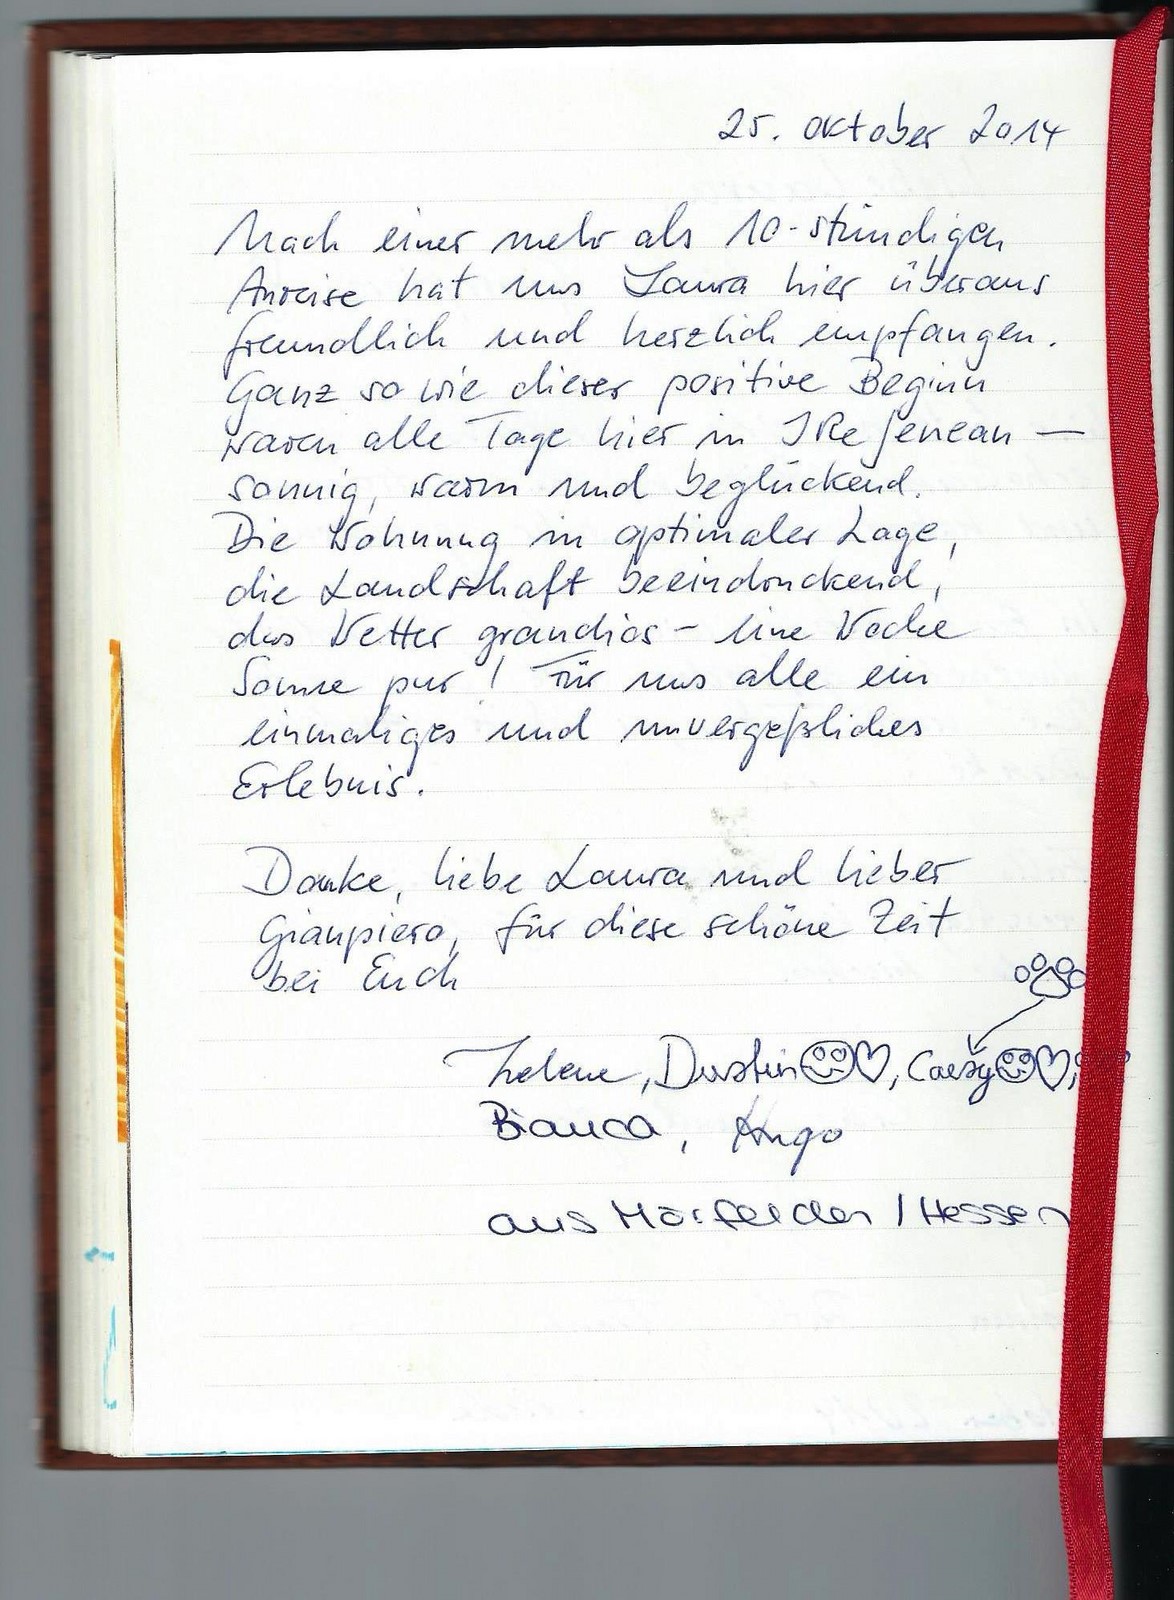 25. Oktober 2014
Nach einer mehr als 10-stündigen
Anreise hat uns Laura hier überaus
freundlich und herzlich empfangen.
Ganz so wie dieser positive Beginn
waren alle Tage hier in —
sonnig, warm und beglückend.
Die Wohnung in optimaler Lage,
die Landschaft beeindruckend,
das Wetter grandios - eine Woche
Sonne pur! Für uns alle ein
einmaliges und unvergeßliches
Erlebnis.
Danke, liebe Laura und lieber
Gianpiero, für diese schöne Zeit
bei Euch
Helene, Dustin,
Bianca, Hugo
aus Mörfelden / Hessen